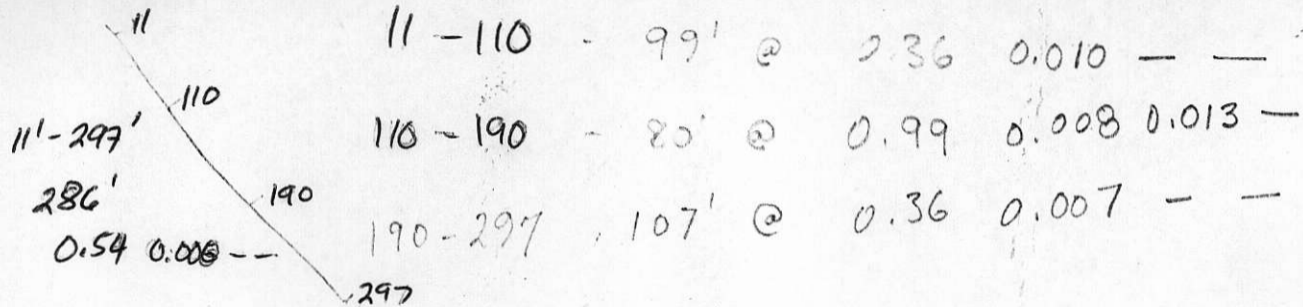 11
110
190
297
11'-297'
286'
0.54 0.006 - -
11 - 110 - 99' @ 0.36 0.010 — —
110 - 190 - 80' @ 0.99 0.008 0.013 —
190-297 . 107' @ 0.36 0.007 - —